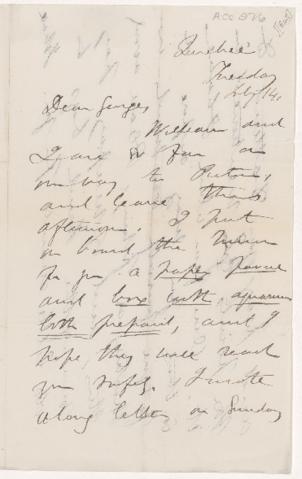 ACC 976
Quebec
Tuesday
July 14.
Dear George,
William and
I are so far on
our way to Pictou,
and leave this
afternoon. I put
on board the
for you a paper parcel
and box with aquarium
both prepaid, and I
hope they will reach
you safely. I wrote
a long letter on Sunday